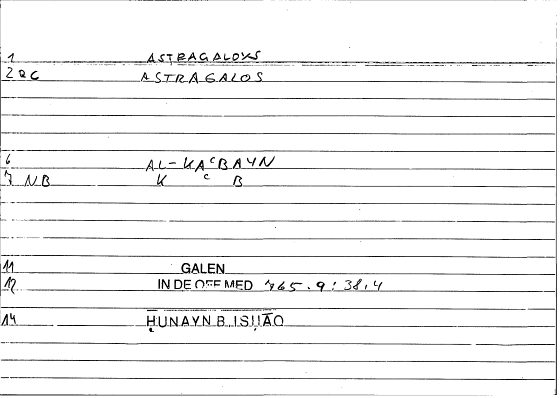 1 ASTRAGALOYS
2 RC ASTRAGALOS
6 AL-KAᶜBAYN
7 NB K ᶜ B
11 GALEN
12 IN DE OFF MED 765.9:38,4
14 ḤUNAYN B. ISḤĀQ